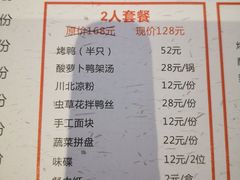 2人套餐
原价168元 现价128元
份 烤鸭（半只） 52元
份 酸萝卜鸭架汤 28元/锅
份 川北凉粉 12元/份
份 虫草花拌鸭丝 28元/份
份 手工面块 12元/份
份 蔬菜拼盘 22元/份
份 味碟 12元/2位